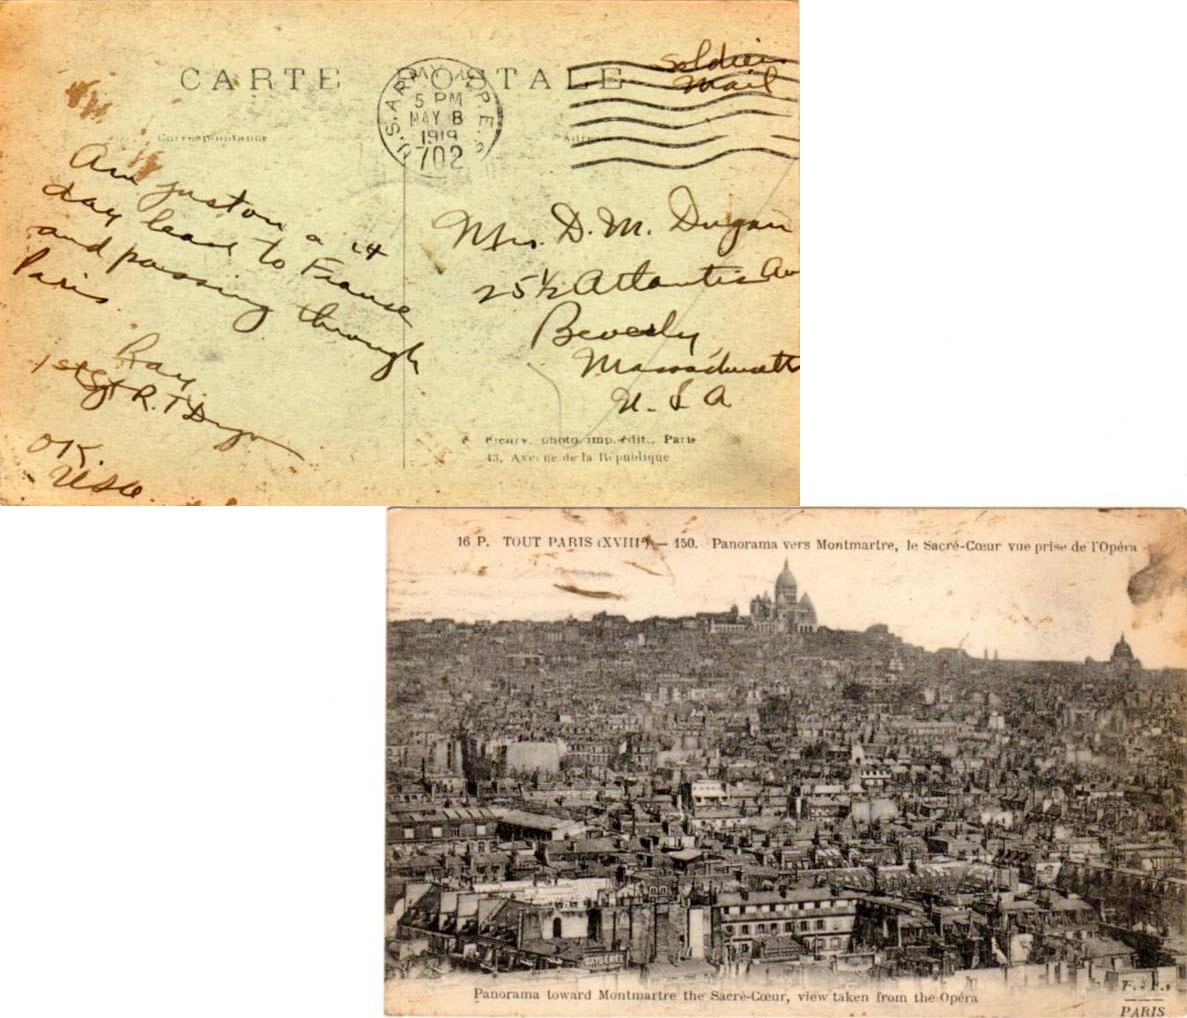 CARTE POSTALE
Soldier
Mail
U.S. ARMY M.P.E.S.
5 PM
MAY 8
1919
702
Correspondance
Adresse
Am just on a 14
day leave to France
and passing through
Paris.
Ray.
1st Sgt R. T Dugan
OK.
USA
Mrs. D. M. Dugan
25½ Atlantic Av
Beverly,
Massachusetts
U. S A
Fleury, photo. imp.-édit., Paris
43, Avenue de la République
16 P. TOUT PARIS (XVIIIe) — 150. Panorama vers Montmartre, le Sacré-Cœur vue prise de l'Opéra
OXYGÉNÉE
Panorama toward Montmartre the Sacré-Cœur, view taken from the Opéra
F. F.
PARIS